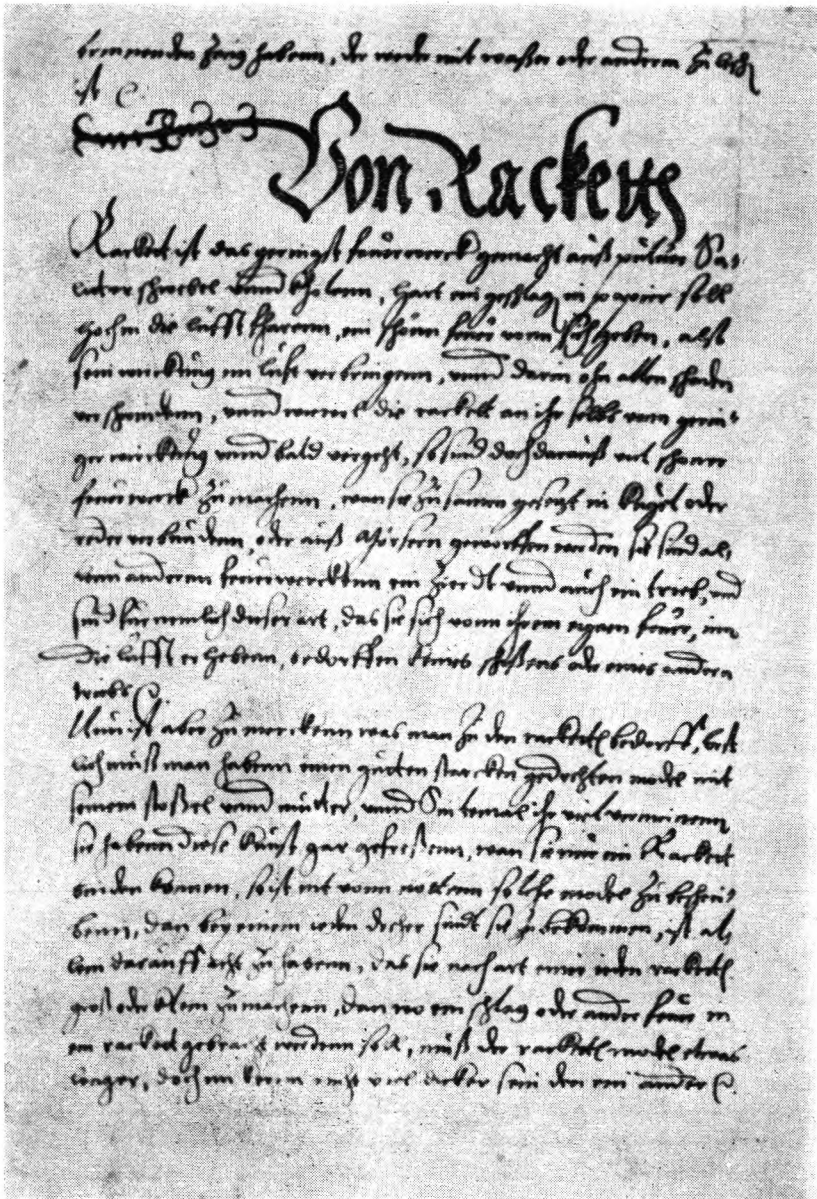 brennenden zeug habenn, der weder mit wasser oder anderem zu lesch
ist
Von Racketten
Rackett ist das geringst feuerwerck gemacht auß puluer Sa-
litter schwebel vnnd kholenn, hart eingeschlagen in papier soll
hoch in die lüfft fharenn, ein schönn feuer vonn sich geben, alßt
sein wirckung im luft verbringenn, vnnd darin ohn allen schaden
verschwindenn, vnnd wiewol die rackett an ihr selbs von gerin-
ger wirckung vnnd bald vergeht, so sind doch darauß viel schoene
feuerwerck zu machenn, wan sie zusamen gesetzt in kugel oder
reder verbundenn, oder auß Mörsern geworffen werden sie sind al-
len anderen feuerwerckenn ein zierdt vnnd auch ein trieb, vnd
sind fürnemlich dieser art, das sie sich vonn ihrem eigenen feuer, inn
die lüfft erhebenn, bedorffen keines schiessens oder eines anderen
triebs
Nun ist aber zu merckenn was man zu den racketten bedarff, erst
lich muß man habenn einen gutten starcken gedrechten model mit
seinem stossel vnnd nutter, vnnd Sintemal ihr viel vermeinenn
sie habenn diese kunst gar gefressenn, wan sie nur ein Rackett
binden konnen, so ist nit vonn nottenn solche model zu beschrei-
benn, dan bey einem ieden dreher sindt sie zu bekommen, ist al-
lein darauff acht zu habenn, das sie nach art einer ieden racketten
groß oder klein zu machenn, dan wo ein schlag oder ander feuer in
ein rackett gebracht werdenn soll, muß der racketten model etwas
lenger, doch im kernn nicht viel dicker sein den ein ander